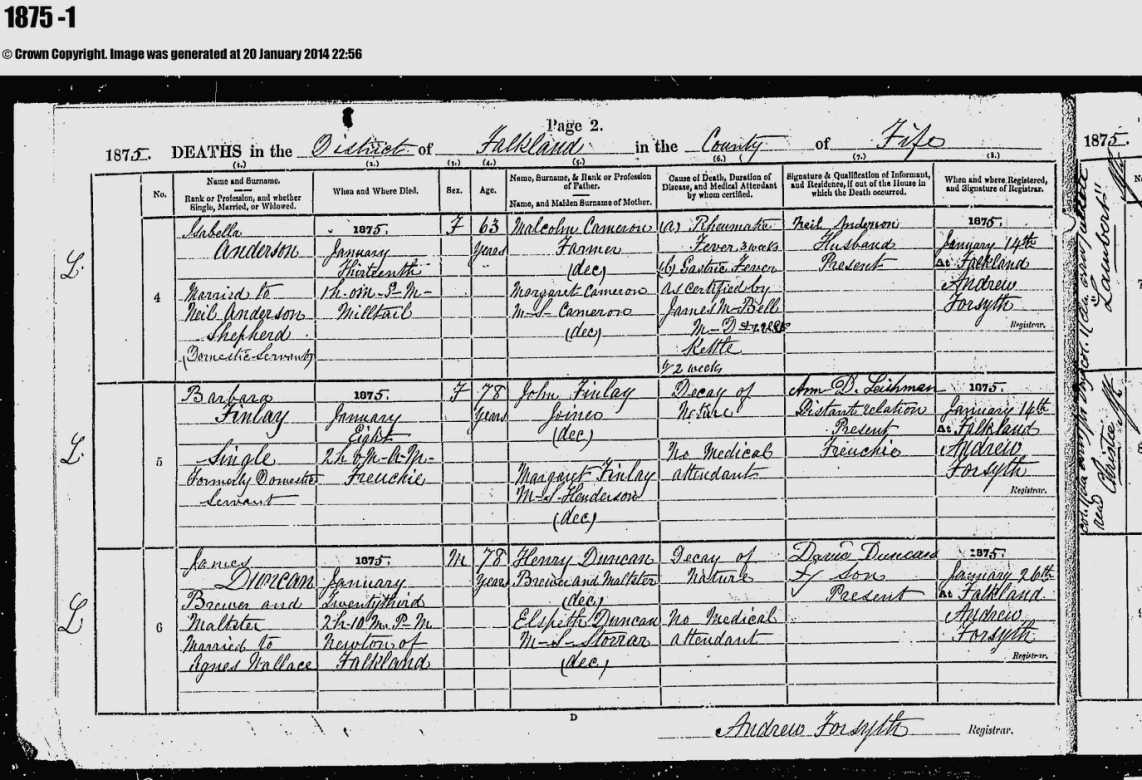 1875 -1
© Crown Copyright. Image was generated at 20 January 2014 22:56
Page 2.
1875. DEATHS in the District of Falkland in the County of Fife
1875.
(1.) (2.) (3.) (4.) (5.) (6.) (7.) (8.)
No.
Name and Surname.
Rank or Profession, and whether
Single, Married, or Widowed.
When and Where Died.
Sex.
Age.
Name, Surname, & Rank or Profession
of Father.
Name, and Maiden Surname of Mother.
Cause of Death, Duration of
Disease, and Medical Attendant
by whom certified.
Signature & Qualification of Informant,
and Residence, if out of the House in
which the Death occurred.
When and where Registered,
and Signature of Registrar.
L.
4
Isabella
Anderson
Married to
Neil Anderson
Shepherd
(Domestic Servant)
1875.
January
Thirteenth
1h. 0m. P.M.
Milltail
F
63
Years
Malcolm Cameron
Farmer
(dec)
Margaret Cameron
M.S. Cameron
(dec)
(a) Rheumatic
Fever 3 weeks
(b) Gastric Fever
As certified by
James M. Bell
M.D.
Kettle
2 weeks
Neil Anderson
Husband
Present
1875.
January 14th
At Falkland
Andrew
Forsyth
Registrar.
L.
5
Barbara
Finlay
Single
Formerly Domestic
Servant
1875.
January
Eight
2h. 0m. A.M.
Freuchie
F
78
Years
John Finlay
Joiner
(dec)
Margaret Finlay
M.S. Henderson
(dec)
Decay of
Nature
No Medical
attendant
Ann D. Leishman
Distant relation
Present
Freuchie
1875.
January 14th
At Falkland
Andrew
Forsyth
Registrar.
L
6
James
Duncan
Brewer and
Maltster
Married to
Agnes Wallace
1875.
January
Twentythird
2h. 10m. P.M.
Newton of
Falkland
M
78
Years
Henry Duncan
Brewer and Maltster
(dec)
Elspeth Duncan
M.S. Storrar
(dec)
Decay of
Nature
No Medical
attendant
David Duncan
Son
Present
1875.
January 26th
At Falkland
Andrew
Forsyth
Registrar.
D
Andrew Forsyth Registrar.